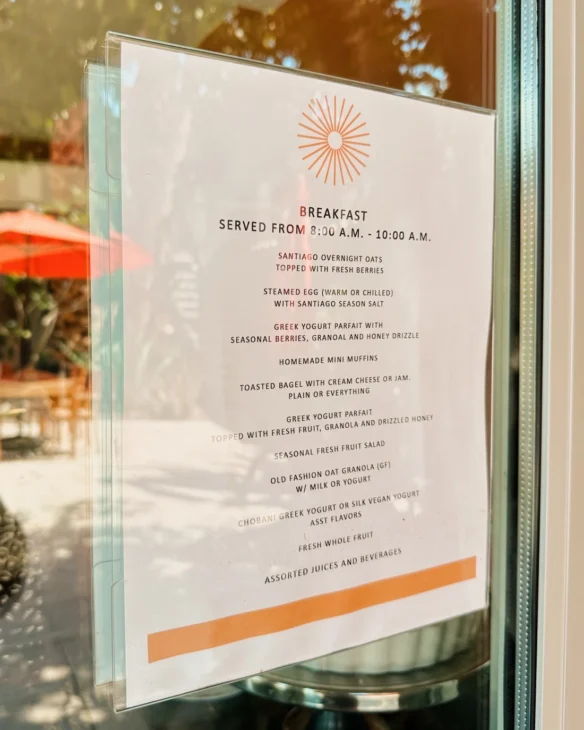 BREAKFAST
SERVED FROM 8:00 A.M. - 10:00 A.M.
SANTIAGO OVERNIGHT OATS
TOPPED WITH FRESH BERRIES
STEAMED EGG (WARM OR CHILLED)
WITH SANTIAGO SEASON SALT
GREEK YOGURT PARFAIT WITH
SEASONAL BERRIES, GRANOAL AND HONEY DRIZZLE
HOMEMADE MINI MUFFINS
TOASTED BAGEL WITH CREAM CHEESE OR JAM.
PLAIN OR EVERYTHING
GREEK YOGURT PARFAIT
TOPPED WITH FRESH FRUIT, GRANOLA AND DRIZZLED HONEY
SEASONAL FRESH FRUIT SALAD
OLD FASHION OAT GRANOLA (GF)
W/ MILK OR YOGURT
CHOBANI GREEK YOGURT OR SILK VEGAN YOGURT
ASST FLAVORS
FRESH WHOLE FRUIT
ASSORTED JUICES AND BEVERAGES